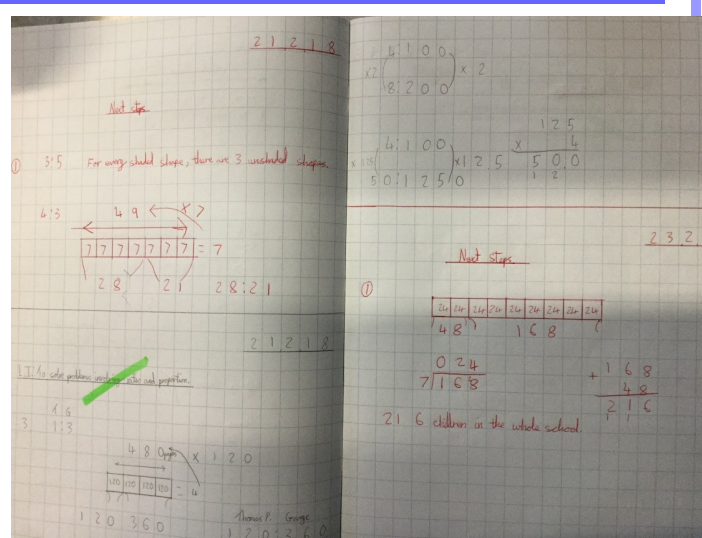 2 1 2 1 8
Next steps
① 3:5 For every shaded shape, there are 3 unshaded shapes.
4:3 4 9 x 7
7 7 7 7 7 7 7 = 7
2 8 2 1 2 8 : 2 1
2 1 2 1 8
L.I. To solve problems involving ratio and proportion.
1:6
3. 1:3
4 8 0 pages x 1 2 0
120 120 120 120 = 4
1 2 0 3 6 0
Thomas P. George
1 2 0 : 3 6 0
4:1 0 0
x2 x 2
8:2 0 0
1 2 5
x 4
5 0 0
1 2
4:1 0 0
x 125 x 1 2 5
5 0:1 2 5 0
2 3 2
Next steps
①
24 24 24 24 24 24 24 24 24
4 8 1 6 8
0 2 4
7 1 6 8
+ 1 6 8
4 8
2 1 6
1 1
2 1 6 children in the whole school.